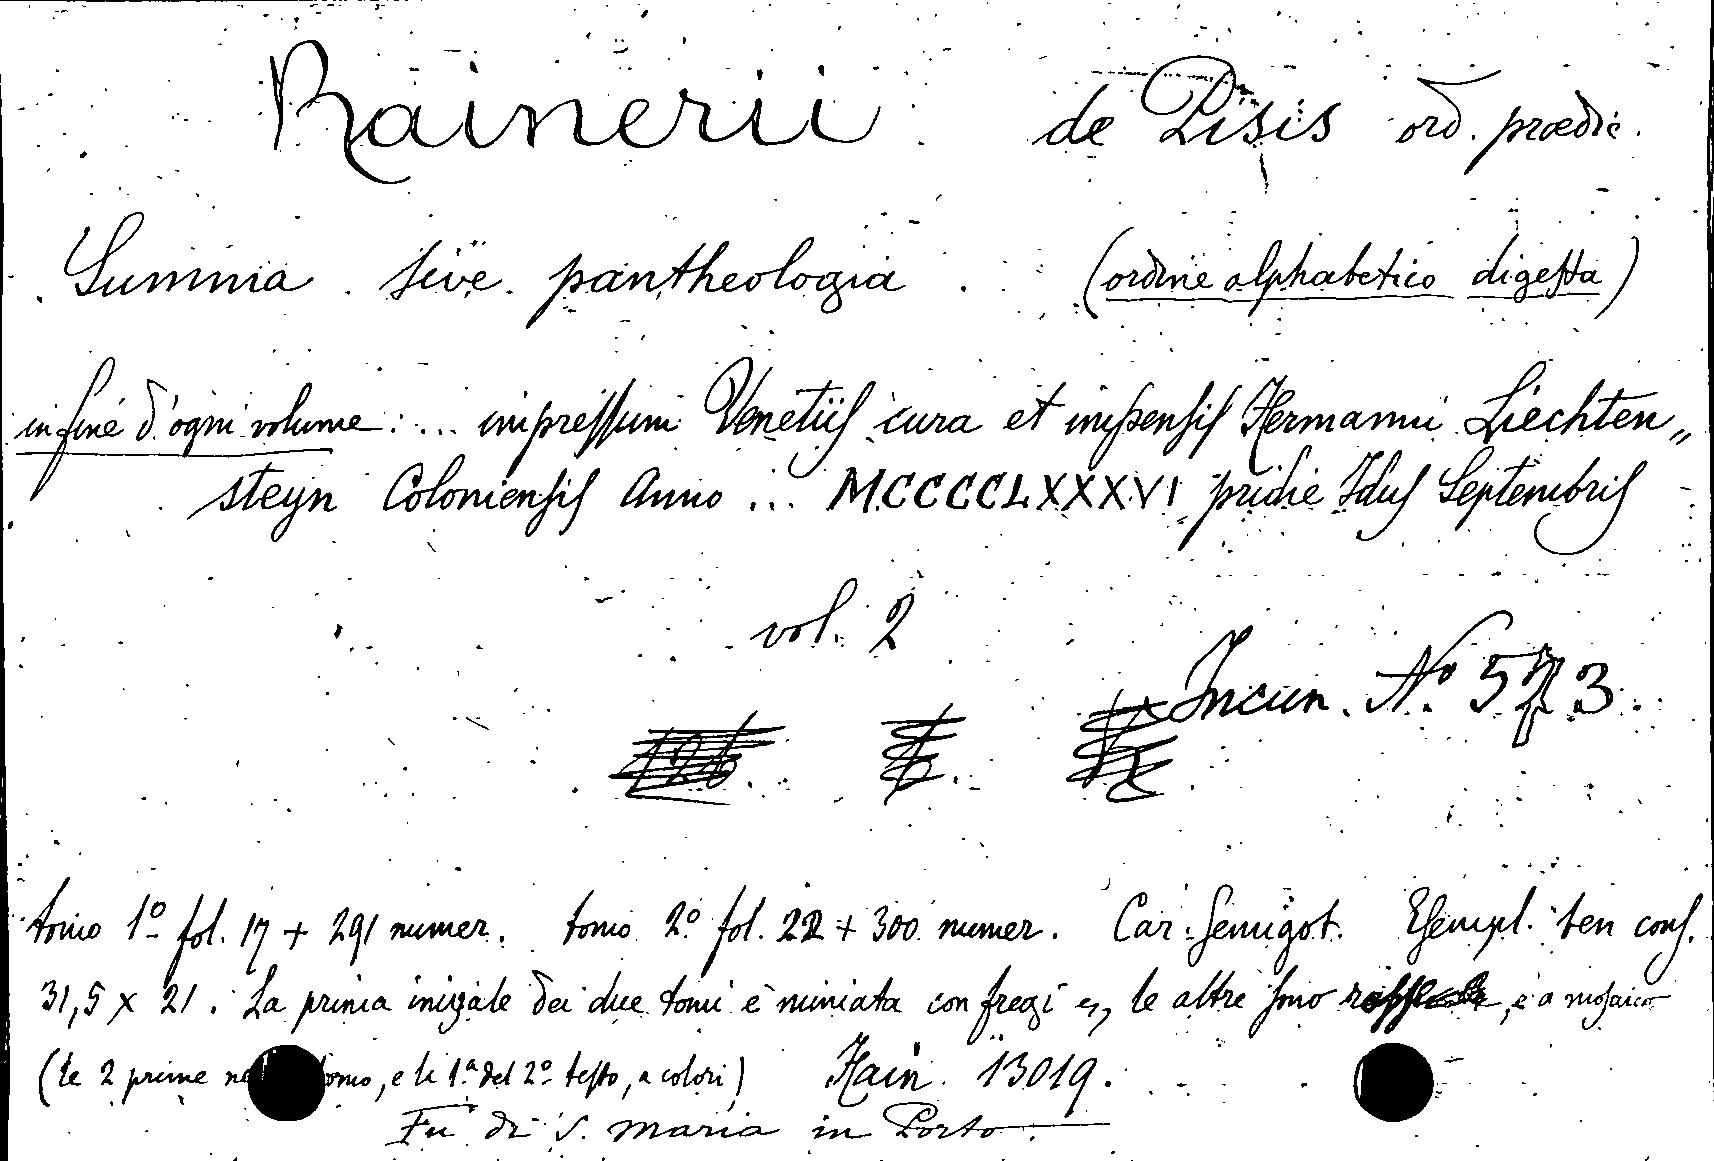 Rainerii de Pisis ord. prædic.
Summa sive pantheologia (ordine alphabetico digesta)
in fine d'ogni volume: ... impressum Venetiis cura et impensis Hermanni Liechten„
steyn Coloniensis Anno ... MCCCCLXXXVI pridie Idus Septembris
vol. 2
Incun. Nº 573.
tomo 1º fol. 17 + 291 numer. tomo 2º fol. 22 + 300 numer. Car. semigot. Esempl. ben cons.
31,5 x 21. La prima inizale dei due tomi è miniata con fregi e, le altre sono, e a mosaico
(le 2 prime tomo, e la 1ª del 2º testo, a colori) Hain. 13019.
Fu di S. Maria in Porto.